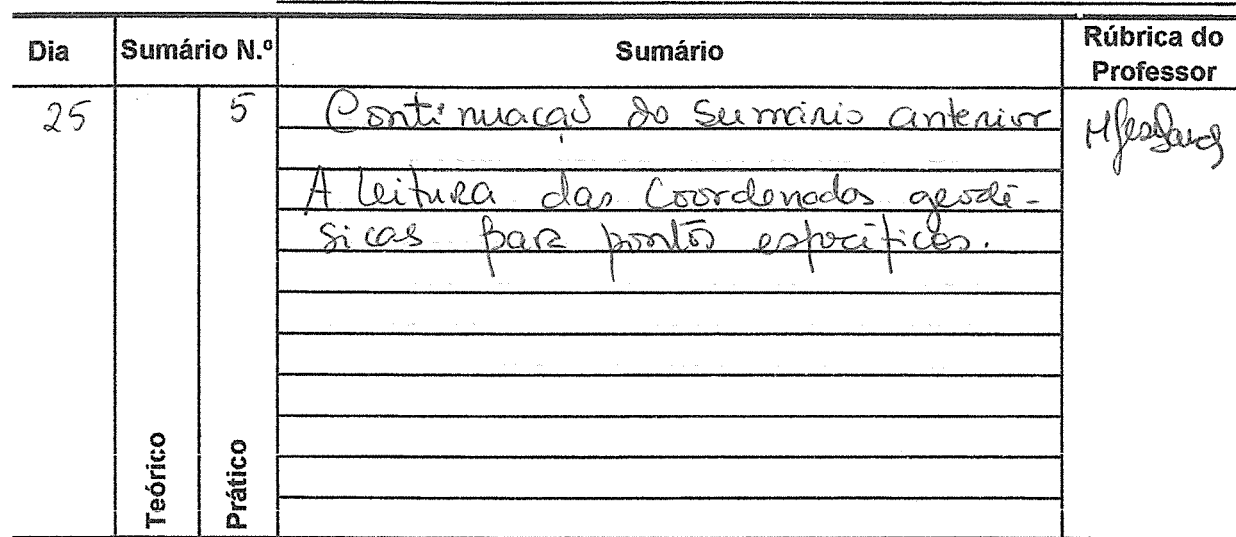 Dia Sumário N.º Sumário Rúbrica do Professor
25 5 Continuação do Sumário anterior
A leitura das Coordenadas geodé-
sicas para pontos específicos.
Teórico
Prático